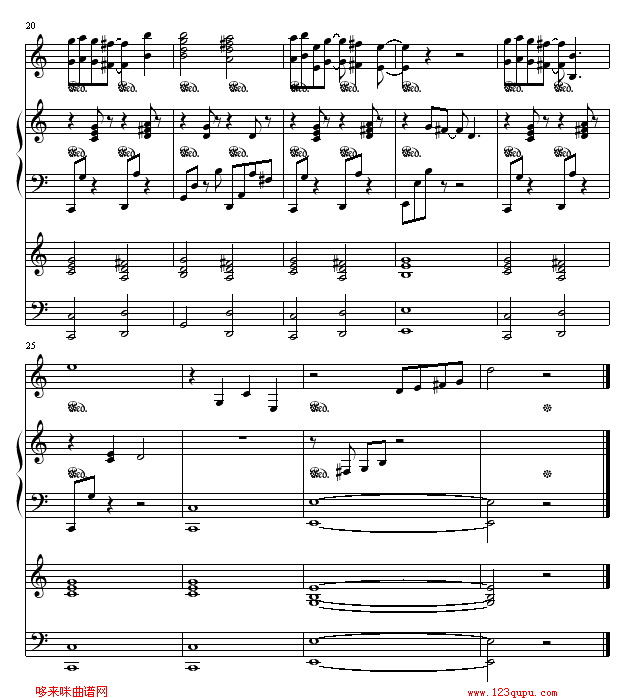 20
25
哆来咪曲谱网
www.123qupu.com